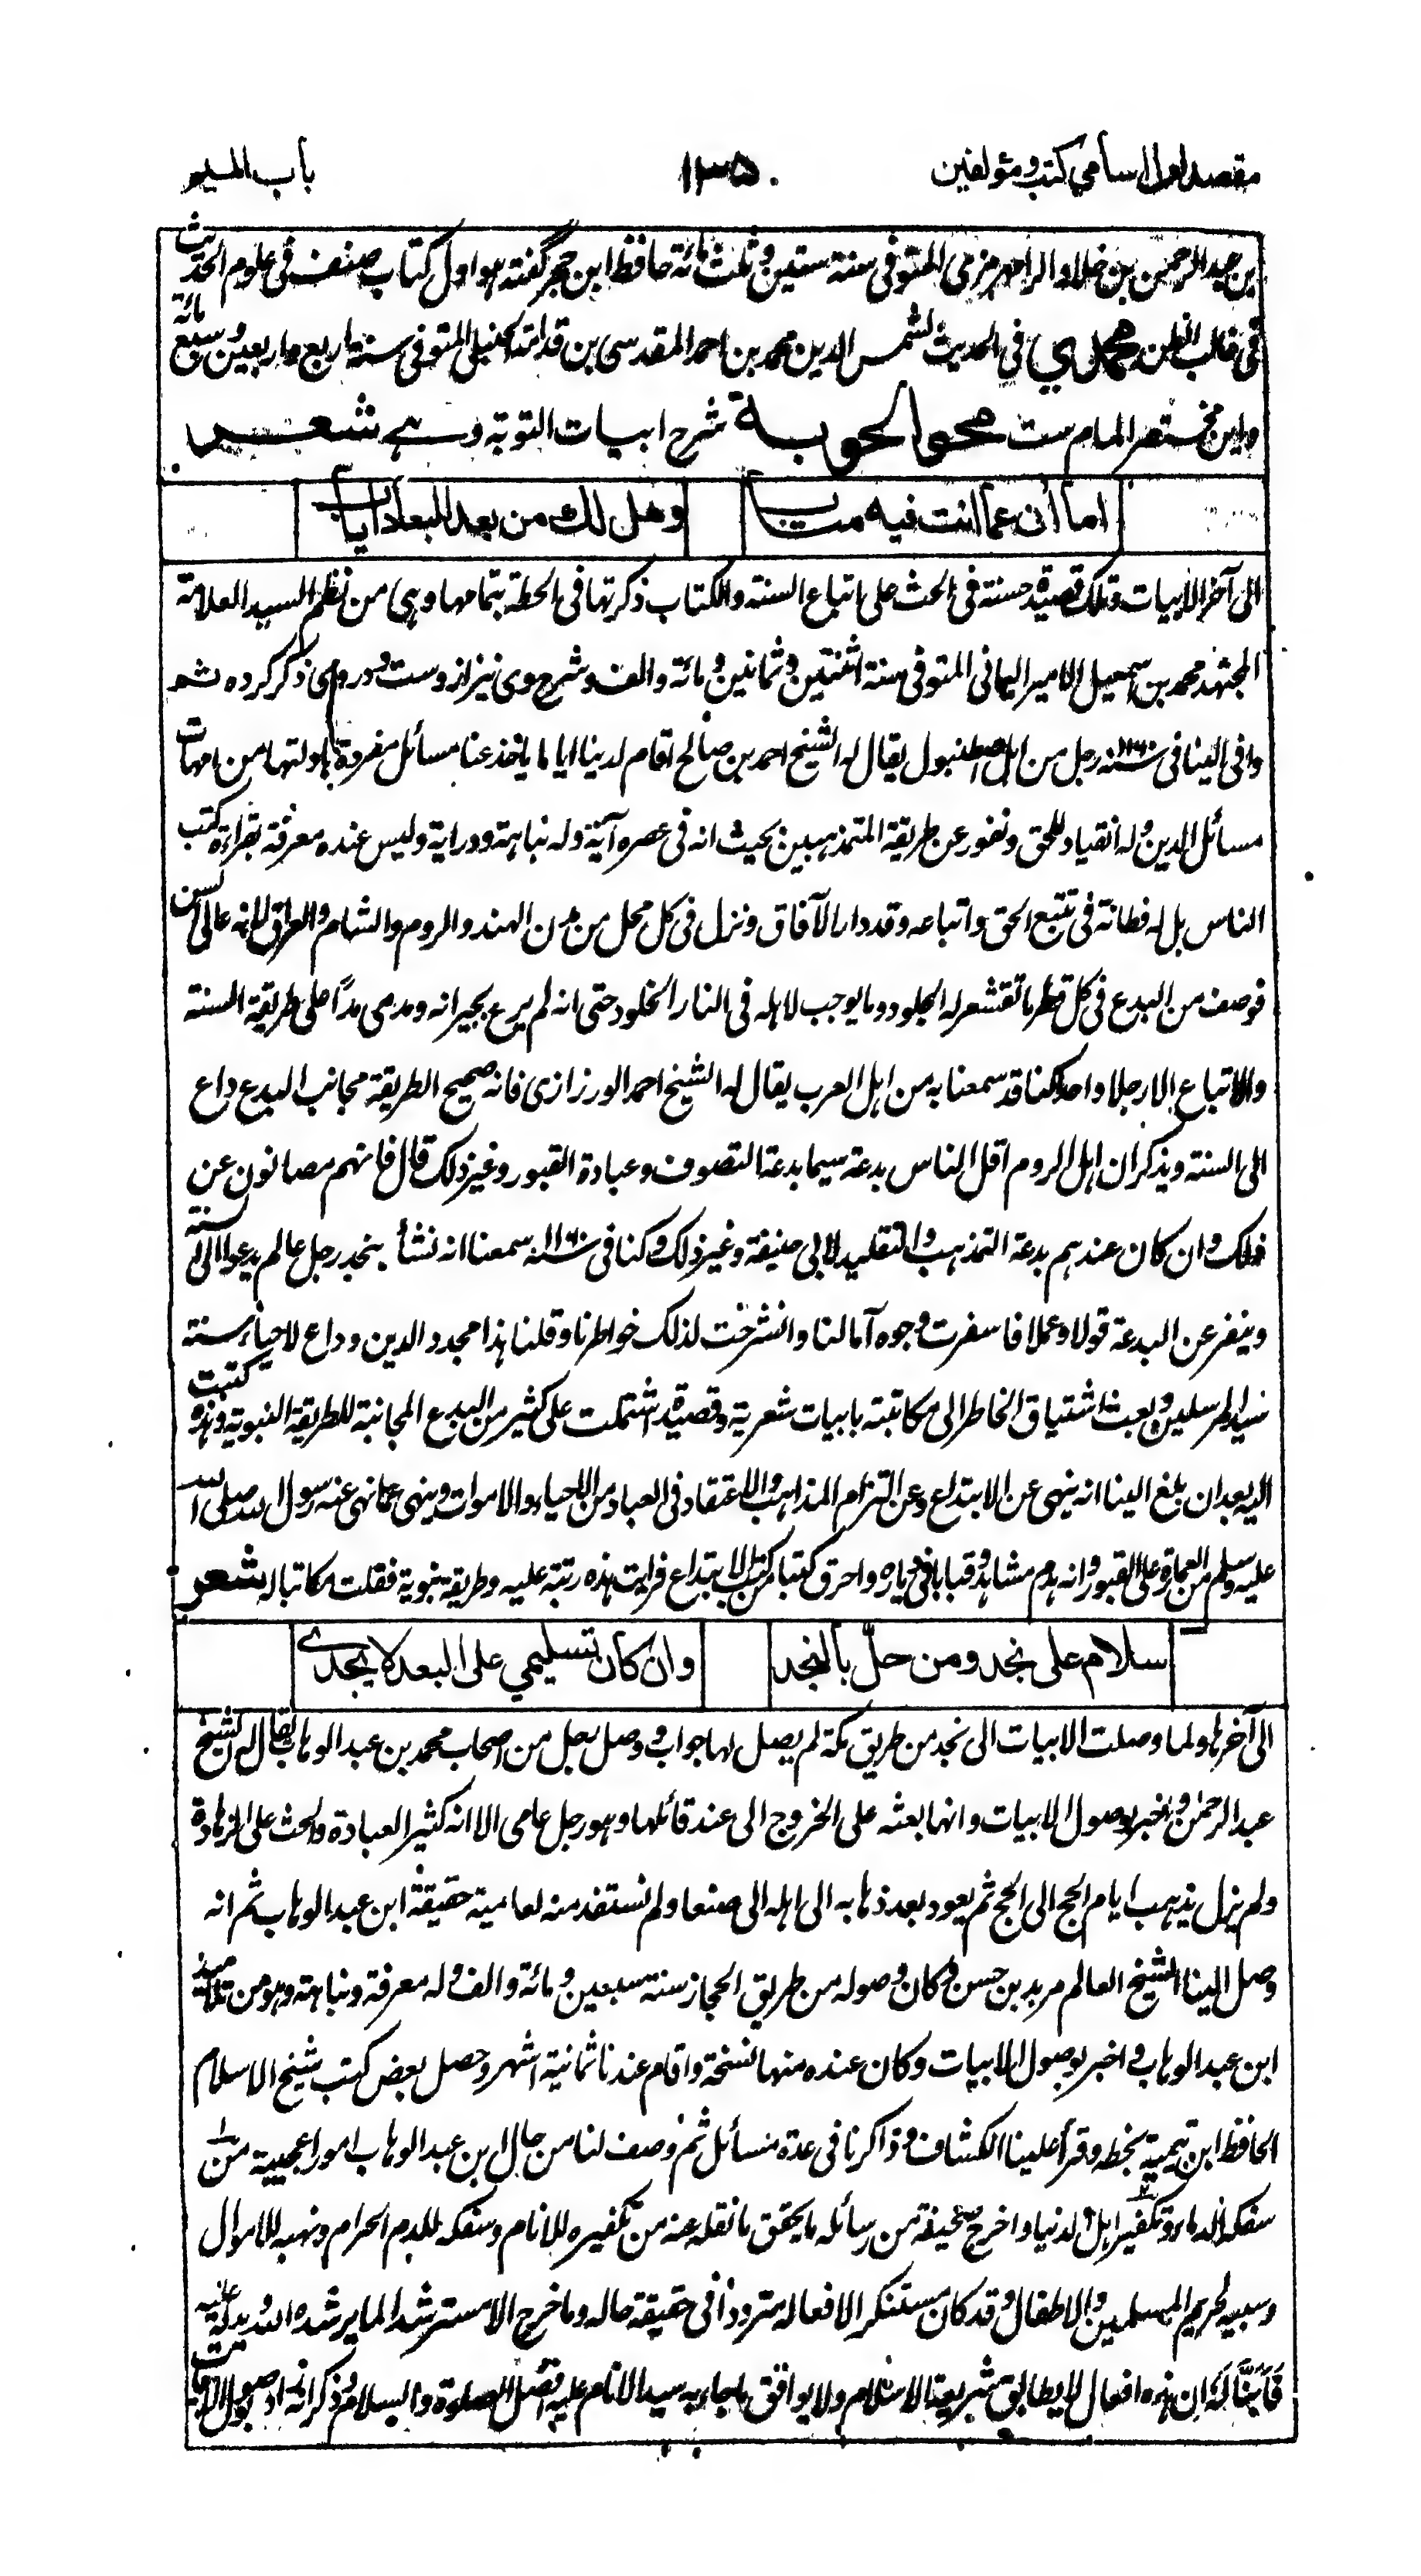 مقصد اول اسامی کتب و مؤلفین
۱۳۵
باب المیم
بن عبد الرحمن بن خلاد الرامهرمزی المتوفی سنة ستین و ثلث مائة حافظ ابن حجر گفته هو اول کتاب صنف فی علوم الحدیث
فی غالب الظن محمدی فی الحدیث لشمس الدین محمد بن احمد المقدسی بن قدامة الحنبلی المتوفی سنة اربع و اربعین و سبع مائة
و این مختصر المام ست محو الحوبة شرح ابیات التوبة وهی شعر
اما آن عما انت فیه متاب
وهل لك من بعد البعاد ایاب
الی آخر الابیات و تلک قصیدة حسنة فی الحث علی اتباع السنة والکتاب ذکرتها فی الحطة بتمامها وهی من نظم السید العلامة
المجتهد محمد بن اسمعیل الامیر الیمانی المتوفی سنة اثنتین و ثمانین و مائة والف و شرح وی نیز ازوست و در وی ذکر کرده
وافی الینا فی سنة رجل من اهل اصطنبول یقال له الشیخ احمد بن صالح اقام لدینا ایاما یاخذ عنا مسائل مفردة بادلتها من امهات
مسائل الدین و له انقیاد للحق و نفور عن طریقة المتمذهبین بحیث انه فی عصره آیة وله نباهة و درایة ولیس عنده معرفة بقراءة کتب
الناس بل له فطانة فی تتبع الحق واتباعه وقد دار الآفاق ونزل فی کل محل من مدن الهند والروم والشام والعراق لانه عالی السن
فوصف من البدع فی کل قطر ما تقشعر له الجلود وما یوجب لاهله فی النار الخلود حتی انه لم یر
والاتباع الا رجلا واحدا کنا قد سمعنا به من اهل العرب یقال له الشیخ احمد الورزازی فانه صحیح الطریقة مجانب البدع داع
الی السنة ویذکر ان اهل الروم اقل الناس بدعة سیما بدعة التصوف وعبادة القبور وغیر ذلک قال فانهم مصانون عن
ذلک وان کان عندهم بدعة التمذهب والتقلید لابی حنیفة وغیر ذلک وکنا فی سنة ۱۱۶۰ سمعنا انه نشأ بنجد رجل عالم یدعو الی السنة
وینفر عن البدعة قولا وعملا فاسفرت وجوه آمالنا وانشرحت لذلک خواطرنا وقلنا هذا مجدد الدین و داع لاحیاء سنة
سید المرسلین وبعث اشتیاق الخاطر الی مکاتبته بابیات شعریة وقصیدة اشتملت علی کثیر من البدع المجانبة للطریقة النبویة وهذه کتبت
الیه بعد ان بلغ الینا انه ینهی عن الابتداع وعن التزام المذاهب والاعتقاد فی العباد من الاحیاء والاموات وینهی عما نهی عنه رسول الله صلی الله
علیه وسلم من العمارة علی القبور وانه هدم مشاهد و قبابا فی دیاره واحرق کتبا من کتب الابتداع فرایت هذه رتبة علیه وطریقة نبویة فقلت مکاتبا له شعر
سلام علی نجد ومن حلّ بالنجد
وان کان تسلیمی علی البعد لا یجدی
الی آخرها ولما وصلت الابیات الی نجد من طریق مکة لم یصل لها جواب ووصل رجل من اصحاب محمد بن عبد الوهاب یقال له الشیخ
عبد الرحمن واخبر بوصول الابیات وانها بعثه علی الخروج الی عند قائلها وهو رجل عامی الا انه کثیر العبادة والحث علی الزهادة
ولم یزل یذهب ایام الحج الی الحج ثم یعود بعد ذهابه الی اهله الی صنعا ولم نستفد منه لعامیته حقیقة ابن عبد الوهاب ثم انه
وصل الینا الشیخ العالم مربد بن حسن وکان وصوله من طریق الحجاز سنة سبعین و مائة والف وله معرفة ونباهة وهو من تلامیذ
ابن عبد الوهاب و اخبر بوصول الابیات وکان عنده منها نسخة واقام عندنا ثمانیة اشهر وحصل بعض کتب شیخ الاسلام
الحافظ ابن تیمیة بخطه وقرأ علینا الکشاف وذاکرنا فی عدة مسائل ثم وصف لنا من حال ابن عبد الوهاب امورا عجیبة من
سفکه الدماء وتکفیر اهل الدنیا واخرج صحیفة من رسائله ما یحقق ما نقله عنه من تکفیره للانام وسفکه للدم الحرام ونهبه للاموال
وسبیه لحریم المسلمین والاطفال وقد کان مستنکرا لافعاله مترددا فی حقیقة حاله وما خرج الا مسترشدا لما یرشده الله الیه
فَابَنَّا لَهُ ان هذه افعال لا یطابق شریعة الاسلام ولا یوافق ما جاء به سید الانام علیه افضل الصلوة والسلام وذکر انه